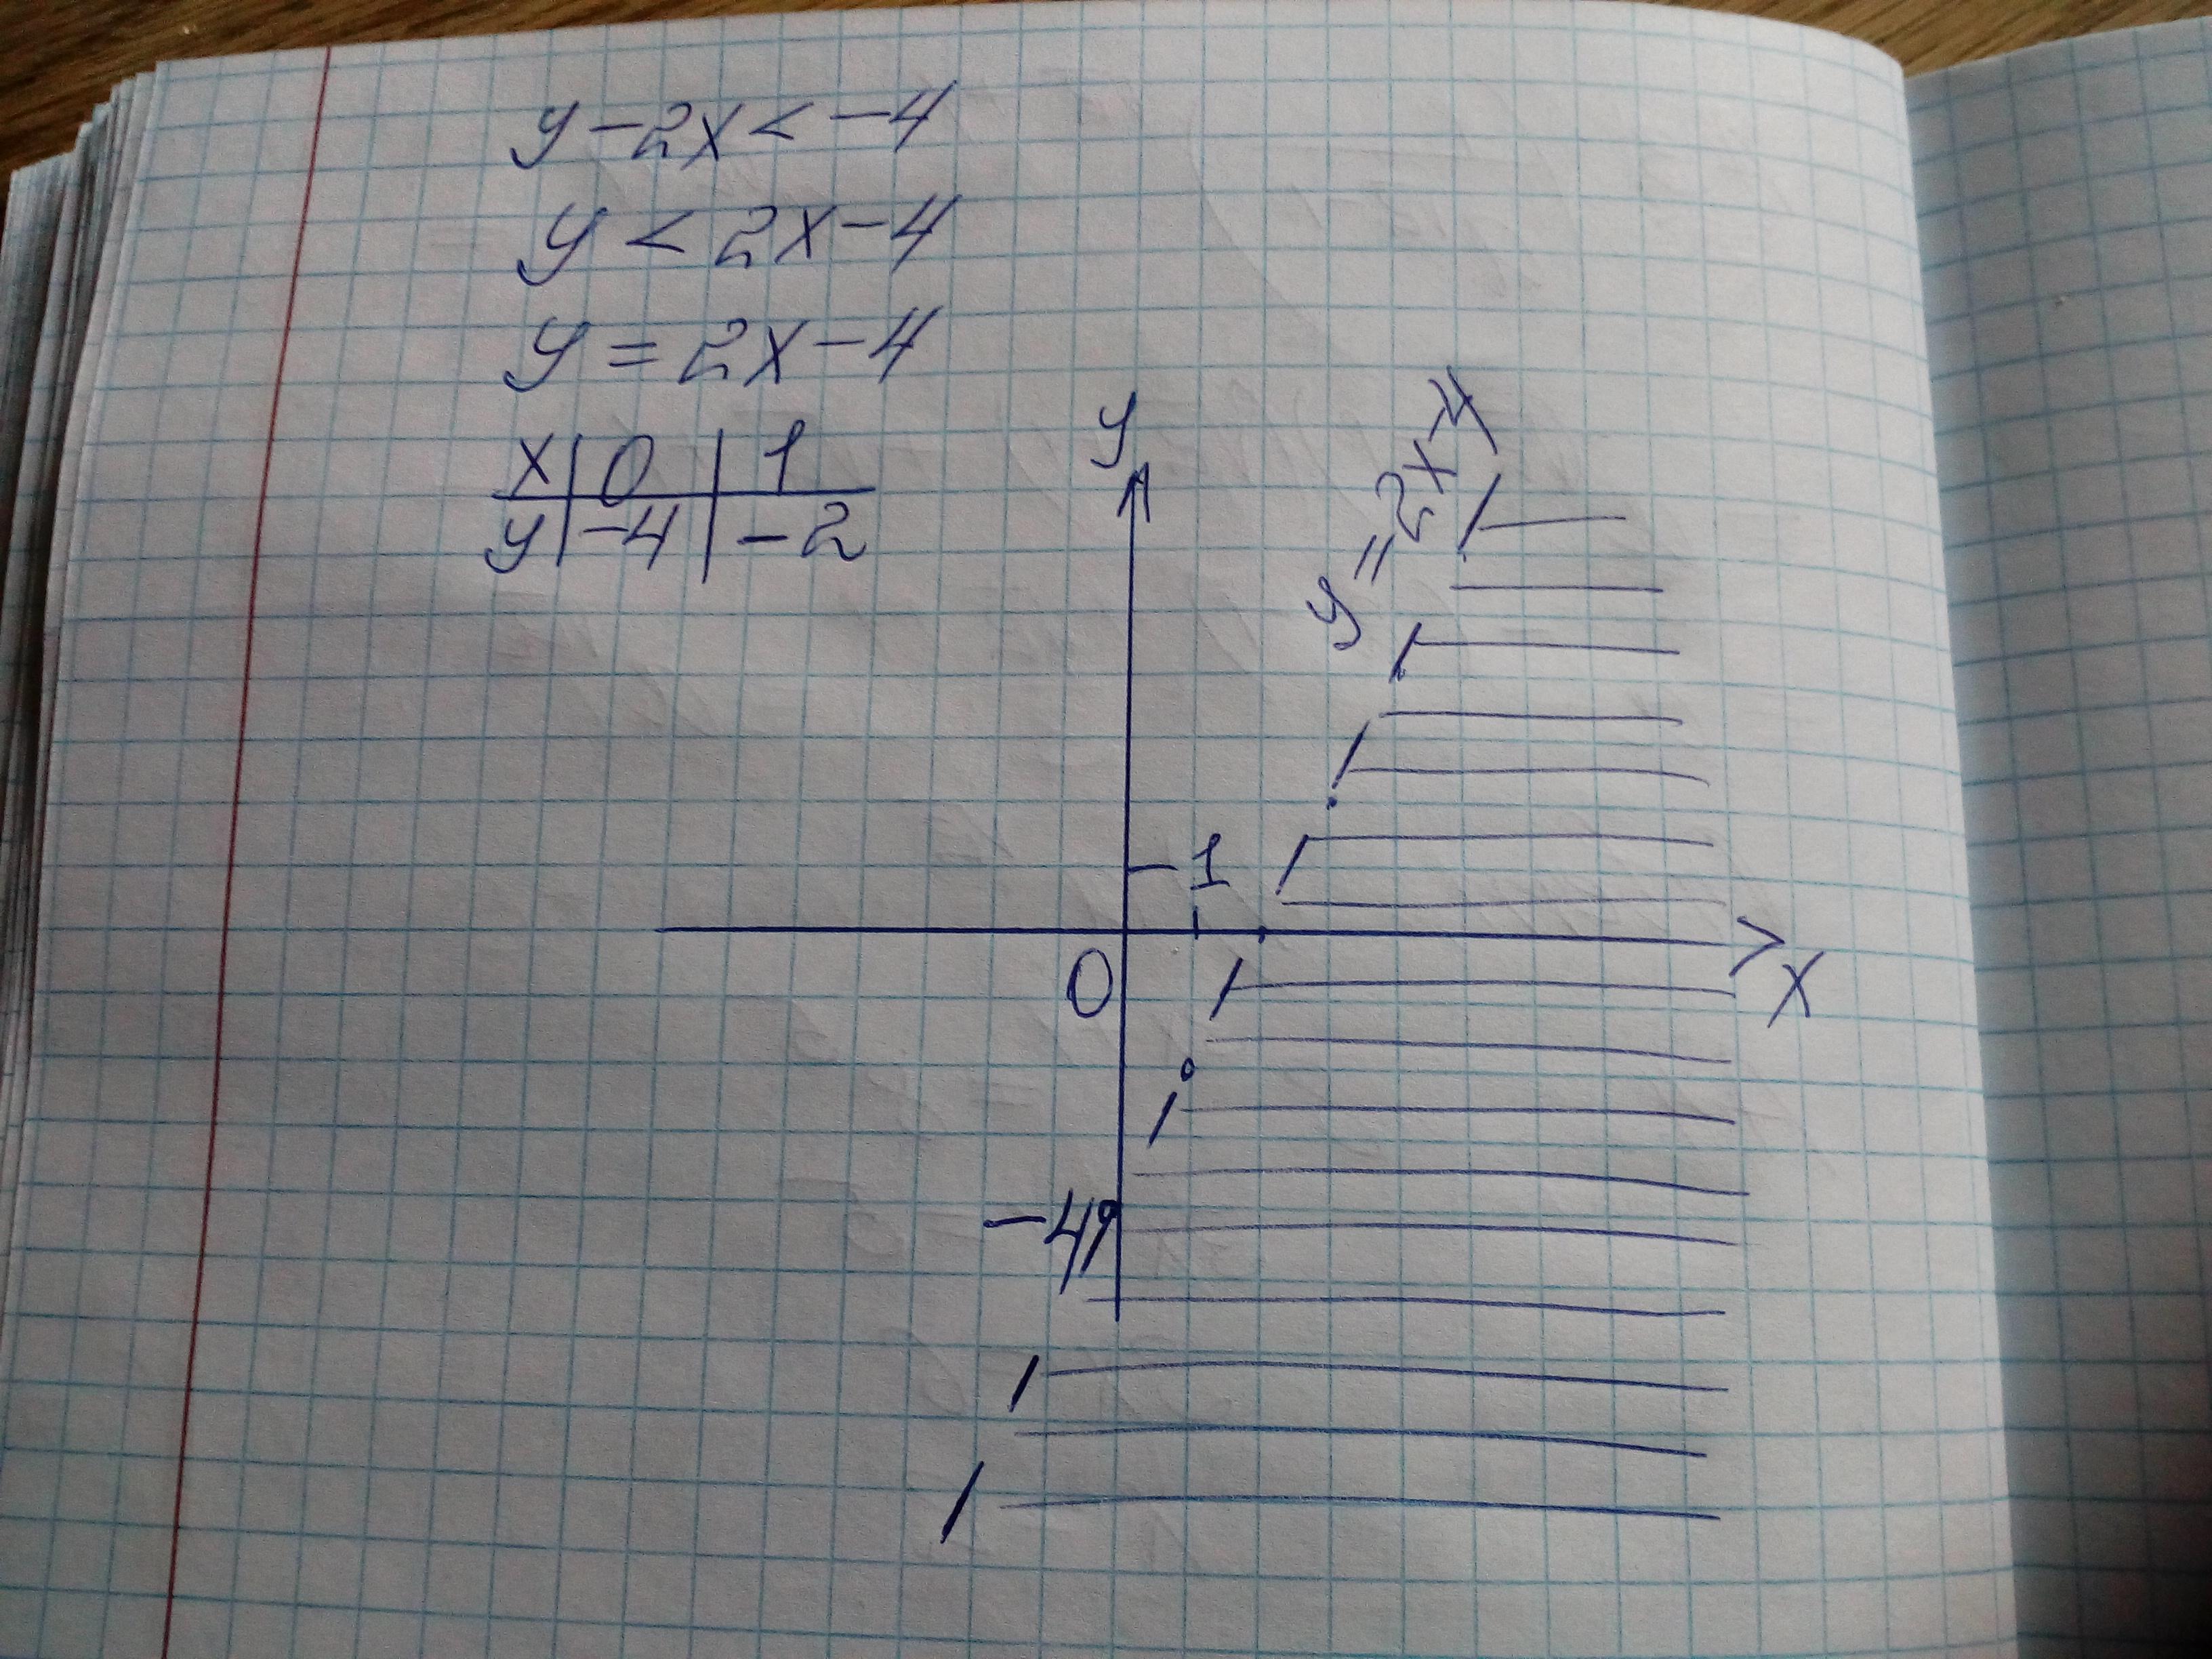 y-2x<-4
y<2x-4
y=2x-4
x|0|1
y|-4|-2
y
y=2x-4
1
0
x
-4